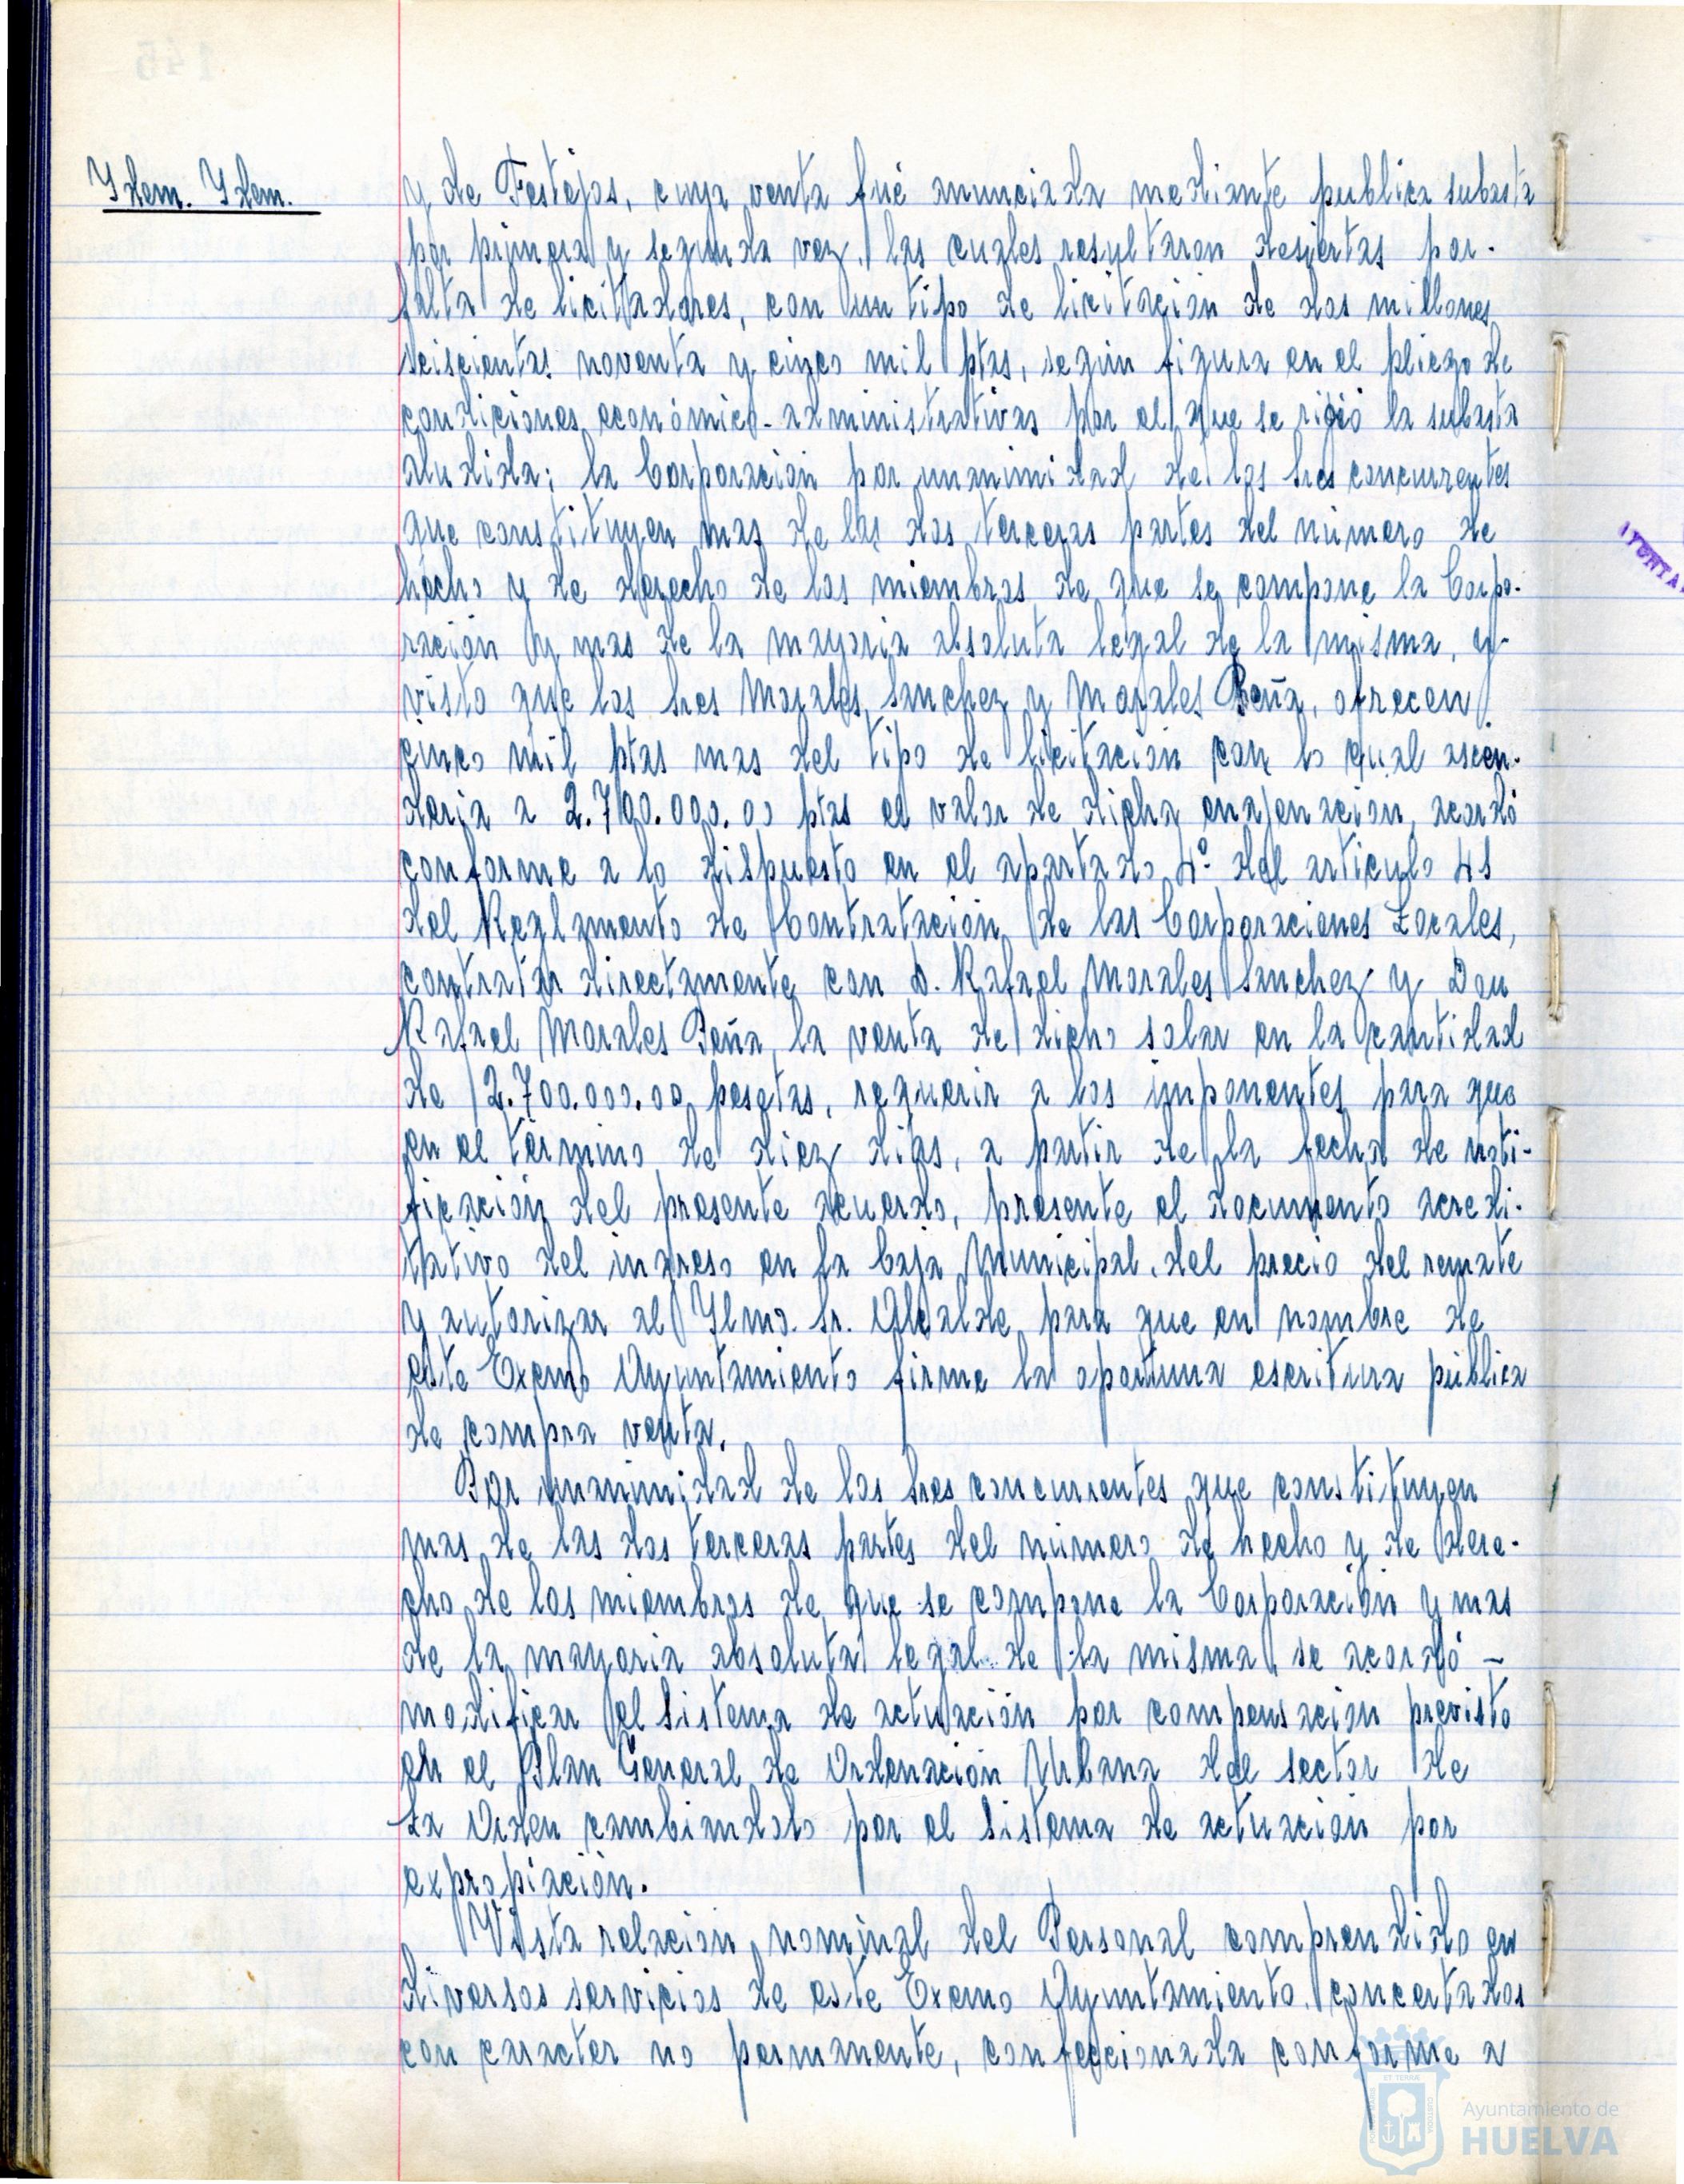 Idem. Idem.
y de Festejos, cuya venta fué anunciada mediante publica subasta
por primera y segunda vez, las cuales resultaron desiertas por-
falta de licitadores, con un tipo de licitación de dos millones
seiscientas noventa y cinco mil ptas, según figura en el pliego de
condiciones económico-administrativas por el que se rigió la subasta
aludida; la Corporación por unanimidad de los sres concurrentes
que constituyen mas de las dos terceras partes del número de
hecho y de derecho de los miembros de que se compone la Corpo-
ración y mas de la mayoria absoluta legal de la misma, y-
visto que los sres Morales Sanchez y Morales Peña, ofrecen
cinco mil ptas mas del tipo de licitación con lo qual ascen-
deria a 2.700.000.00 ptas el valor de dicha enajenacion, acordó
conforme a lo dispuesto en el apartado 4º del articulo 41
del Reglamento de Contratación de las Corporaciones Locales,
contratar directamente con D. Rafael Morales Sanchez y Don
Rafael Morales Peña, la venta de dicho solar en la cantidad
de 2.700.000.00 pesetas, requerir a los imponentes para que
en el término de diez dias, a partir de la fecha de noti-
ficación del presente acuerdo, presente el documento acredi-
tativo del ingreso en la Caja Municipal, del precio del remate
y autorizar al Ilmo. Sr. Alcalde para que en nombre de
este Excmo Ayuntamiento firme la oportuna escritura pública
de compra venta.
Por unanimidad de los sres concurrentes que constituyen
mas de las dos terceras partes del número de hecho y de dere-
cho de los miembros de que se compone la Corporación y mas
de la mayoria absoluta legal de la misma, se acordó -
modificar el sistema de actuación por compensación previsto
en el Plan General de Ordenación Urbana del sector de
La Orden cambiandolo por el sistema de actuación por
expropiación.
Vista relacion nominal del Personal comprendido en
diversos servicios de este Excmo Ayuntamiento, concertados
con caracter no permanente, confeccionada conforme a
Ayuntamiento de
HUELVA